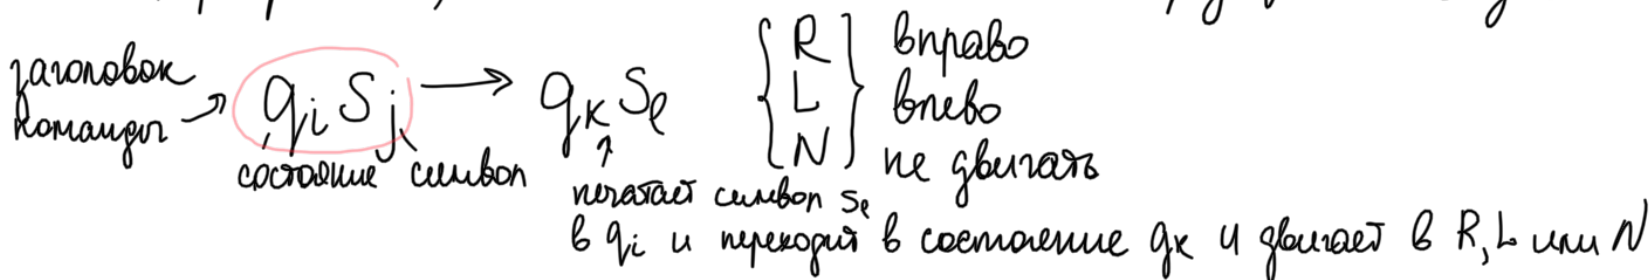 заголовок команды → qᵢ Sⱼ → qₖ Sₗ { R L N } вправо
влево
не двигать
состояние символ
печатает символ Sₗ
в qᵢ и переходит в состояние qₖ и двигает в R, L или N